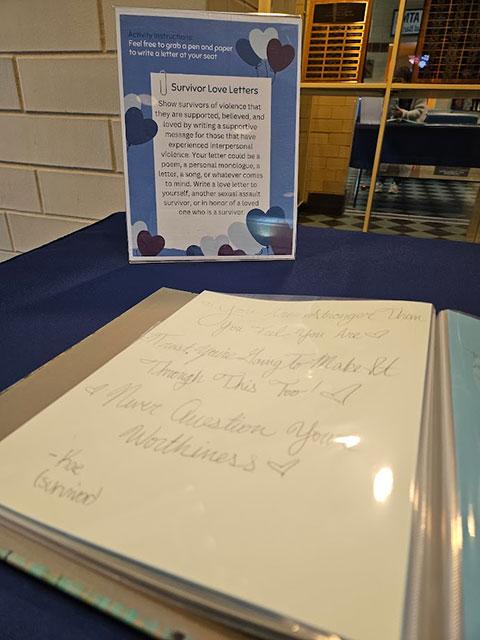 Activity Instructions:
Feel free to grab a pen and paper
to write a letter at your seat
Survivor Love Letters
Show survivors of violence that
they are supported, believed, and
loved by writing a supportive
message for those that have
experienced interpersonal
violence. Your letter could be a
poem, a personal monologue, a
letter, a song, or whatever comes
to mind. Write a love letter to
yourself, another sexual assault
survivor, or in honor of a loved
one who is a survivor.
You Are Stronger Than
You Feel You Are
Trust You're Going To Make It
Through This Too!
Never Question Your
Worthiness
(survivor)